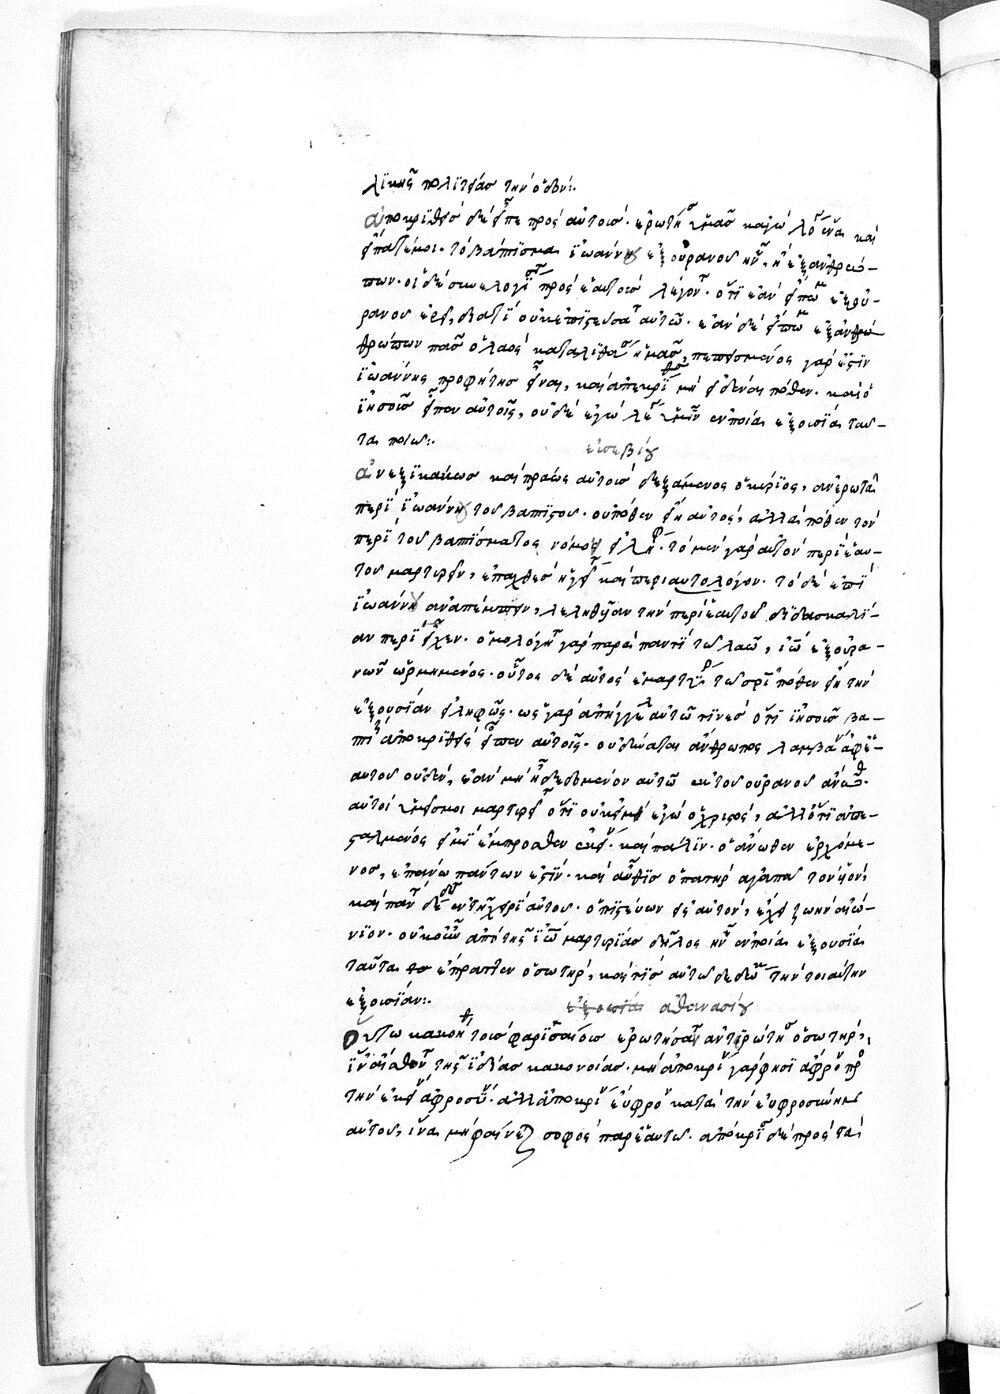 λϊκῆς πολϊτείας τὴν ὁδόν:.
ἀποκρϊθεὶς δὲ εἶπε πρὸς αὐτοὺς· ἐρωτήσω ὑμᾶς κἀγὼ λόγον ἕνα καὶ
εἴπατέ μοι· τὸ βάπτϊσμα ἰωάννου ἐξ οὐρανοῦ ἦν, ἢ ἐξ ἀνθρώ-
πων· οἱ δὲ συνελογίσαντο πρὸς ἑαυτοὺς λέγοντες· ὅτϊ ἐὰν εἴπωμεν ἐξ οὐ-
ρανοῦ ἐρεῖ, διατί οὐκ ἐπιστεύσατε αὐτῶ· ἐὰν δὲ εἴπωμεν ἐξ ἀνθρώ
θρώπων πᾶς ὁ λαὸς καταλιθάσει ἡμᾶς, πεπεισμένος γάρ ἐστϊν
ἰωάννης προφήτης εἶναι, καὶ ἀπεκρίθησαν μὴ εἰδέναι πόθεν· καὶ ὁ
ἰησοῦς εἶπεν αὐτοῖς, οὐδὲ ἐγὼ λέγω ὑμῖν ἐν ποία ἐξουσία ταῦ-
τα ποιῶ:.
εὐσεβίου
ἀνεξϊκάκως καὶ πράως αὐτοὺς δεξάμενος ὁ κύριος, ἀνερωτᾶ
περὶ ἰωάννου τοῦ βαπτϊστοῦ· οὐ πόθεν εἴη αὐτὸς, ἀλλὰ πόθεν τὸν
περὶ τοῦ βαπτίσματος νόμον εἰλήφει· τὸ μὲν γὰρ αὐτὸν περὶ ἑαυ-
τοῦ μαρτυρεῖν, ἐπαχθὲς ἡγεῖτο καὶ περιαυτολόγον· τὸ δὲ ἐπὶ
ἰωάννην ἀναπέμπειν, λεληθυῖαν τὴν περὶ ἑαυτοῦ διδασκαλί-
αν περιεῖχεν· ὁμολόγητο γὰρ παρὰ παντὶ τῶ λαῶ, ἰωάννης ἐξ οὐρα-
νῶν ὡρμημένος· οὗτος δὲ αὐτὸς ἐμαρτύρει τῶ σωτῆρι πόθεν εἴη τὴν
ἐξουσίαν εἰληφώς· ὡς γὰρ ἀπήγγειλαν αὐτῶ τινὲς ὅτϊ ἰησοῦς βα-
πτίζει ἀποκριθεὶς εἶπεν αὐτοῖς· οὐ δύναται ἄνθρωπος λαμβάνειν ἀφ' ἑ-
αυτοῦ οὐδὲν, ἐὰν μὴ ἦ δεδομένον αὐτῶ ἐκ τοῦ οὐρανοῦ ἄνωθεν·
αὐτοὶ ὑμεῖς μοι μαρτυρεῖτε ὅτϊ οὐκ εἰμὶ ἐγὼ ὁ χριστὸς, ἀλλ' ὅτϊ ἀπε-
σταλμένος εἰμὶ ἔμπροσθεν ἐκείνου· καὶ πάλιν· ὁ ἄνωθεν ἐρχόμε-
νος, ἐπάνω πάντων ἐστίν· καὶ αὖθις ὁ πατὴρ ἀγαπᾶ τὸν υἱὸν,
καὶ πάντα δέδωκεν ἐν τῆ χειρὶ αὐτοῦ· ὁ πιστεύων εἰς αὐτὸν, ἔχει ζωὴν αἰώ-
νιον· οὐκοῦν ἀπὸ τῆς ἰωάννου μαρτυρίας δῆλος ἦν ἐν ποία ἐξουσία
ταῦτα ἔπραττεν ὁ σωτὴρ, καὶ τίς αὐτῶ δέδωκε τὴν τοιαύτην
ἐξουσίαν:.
ἐξουσία ἀθανασίου
οὕτω κακονόητοις φαρισαίοις ἐρωτήσασιν ἀντερώτησεν ὁ σωτὴρ,
ἵνα αἴσθωνται τῆς ἰδίας κακονοίας· μὴ ἀποκρίνου γάρ φησι ἄφρονι πρὸς
τὴν ἐκείνου ἀφροσύνην· ἀλλ' ἀποκρίνου ἄφρονι κατὰ τὴν ἀφροσύνην
αὐτοῦ, ἵνα μὴ φαίνηται σοφὸς παρ' ἑαυτῶ· ἀπόκρισιν δὲ πρὸς τὰ